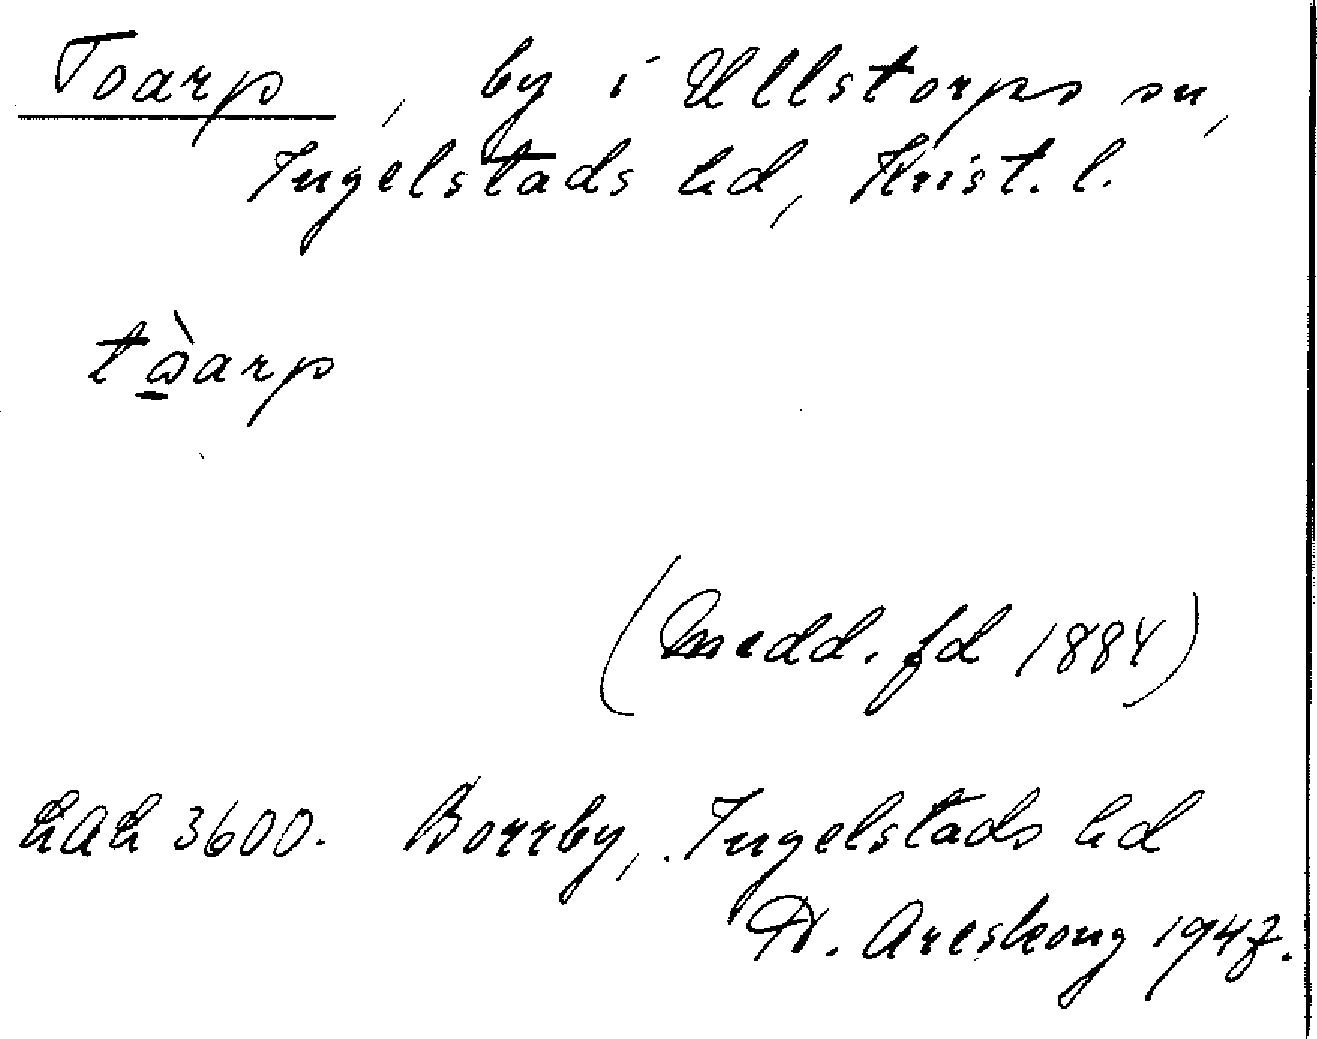 Toarp, by i Ullstorps sn,
Ingelstads hd, Krist. l.
tòarp
(Medd. fd 1884)
LAL 3600. Borrby, Ingelstads hd
D. Areskoug 1947.